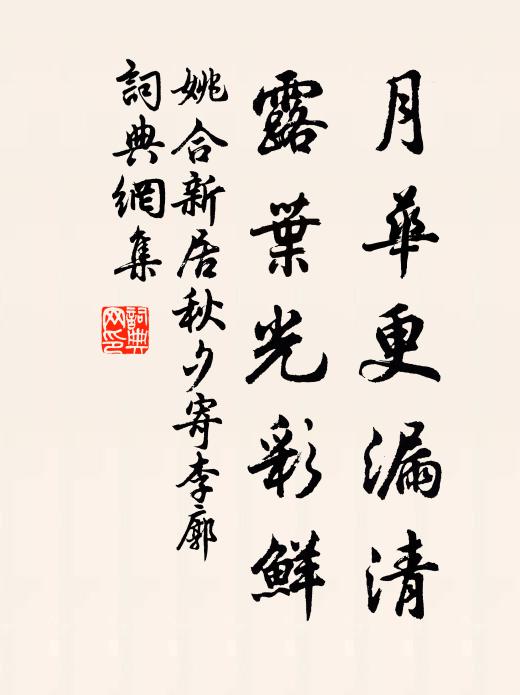 月華更漏清
露葉光彩鮮
姚合新居秋夕寄李廓
詞典網集
詞典網印